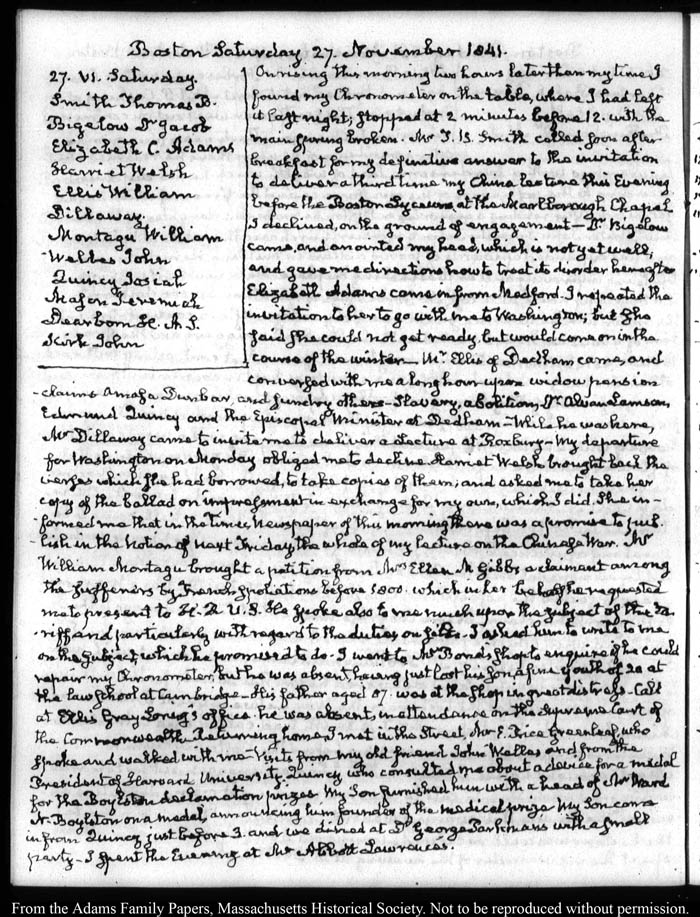 Boston Saturday 27. November 1841.
27. VI. Saturday.
Smith Thomas B.
Bigelow Dr Jacob
Elizabeth C. Adams
Harriet Welsh
Ellis William
Dillaway
Montagu William
Welles John
Quincy Josiah
Mason Jeremiah
Dearborn H. A. S.
Kirk John
On rising this morning two hours later than my time I
found my Chronometer on the table, where I had left
it last night; stopped at 2 minutes before 12. with the
main spring broken. Mr T. B. Smith called soon after
breakfast for my definitive answer to the invitation
to deliver a third time my China lecture this Evening
before the Boston Lyceum, at the Marlborough Chapel
I declined, on the ground of engagement — Dr Bigelow
came and anointed my head, which is not yet well;
and gave me directions how to treat its disorder hereafter
Elizabeth Adams came in from Medford. I repeated the
invitation to her to go with me to Washington; but she
said she could not get ready, but would come on in the
course of the winter — Mr Ellis of Dedham came, and
conversed with me a long hour upon widow pension
claims Amasa Dunbar, and sundry others — Slavery, abolition, Dr Alvan Lamson,
Edmund Quincy and the Episcopal Minister at Dedham — While he was here,
Mr Dillaway came to invite me to deliver a Lecture at Roxbury — My departure
for Washington on Monday obliged me to decline. Harriet Welsh brought back the
verses which she had borrowed, to take copies of them; and asked me to take her
copy of the ballad on impressment in exchange for my own, which I did. She in-
-formed me that in the Times Newspaper of this morning there was a promise to pub-
-lish in the Notion of next Friday the whole of my lecture on the Chinese War. Mr
William Montagu brought a petition from Mrs Ellen M Gibbs a claimant among
the sufferers by French Spoliations before 1800. which in her behalf he requested
me to present to H. R. U. S. He spoke also to me much upon the subject of the Ta-
-riff and particularly with regard to the duties on silks. I asked him to write to me
on the subject, which he promised to do — I went to Mr Bond's shop to enquire if he could
repair my Chronometer, but he was absent, having just lost his son, a fine youth of 20 at
the law school at Cambridge — His father aged 87. was at the shop in great distress — Call
at Ellis Gray Loring's office. he was absent, in attendance on the Supreme Court of
the Commonwealth Returning home, I met in the Street, Mr E. Price Greenleaf, who
spoke and walked with me — Visits from my old friend John Welles and from the
President of Harvard University, Quincy, who consulted me about a device for a medal
for the Boylston declamation prizes My Son furnished him with a head of Mr Ward
N. Boylston on a medal, announcing him founder of the medical prize My Son came
in from Quincy just before 3. and we dined at Dr George Parkman's with a small
party — I spent the Evening at Mr Abbott Lawrence's.
From the Adams Family Papers, Massachusetts Historical Society. Not to be reproduced without permission.